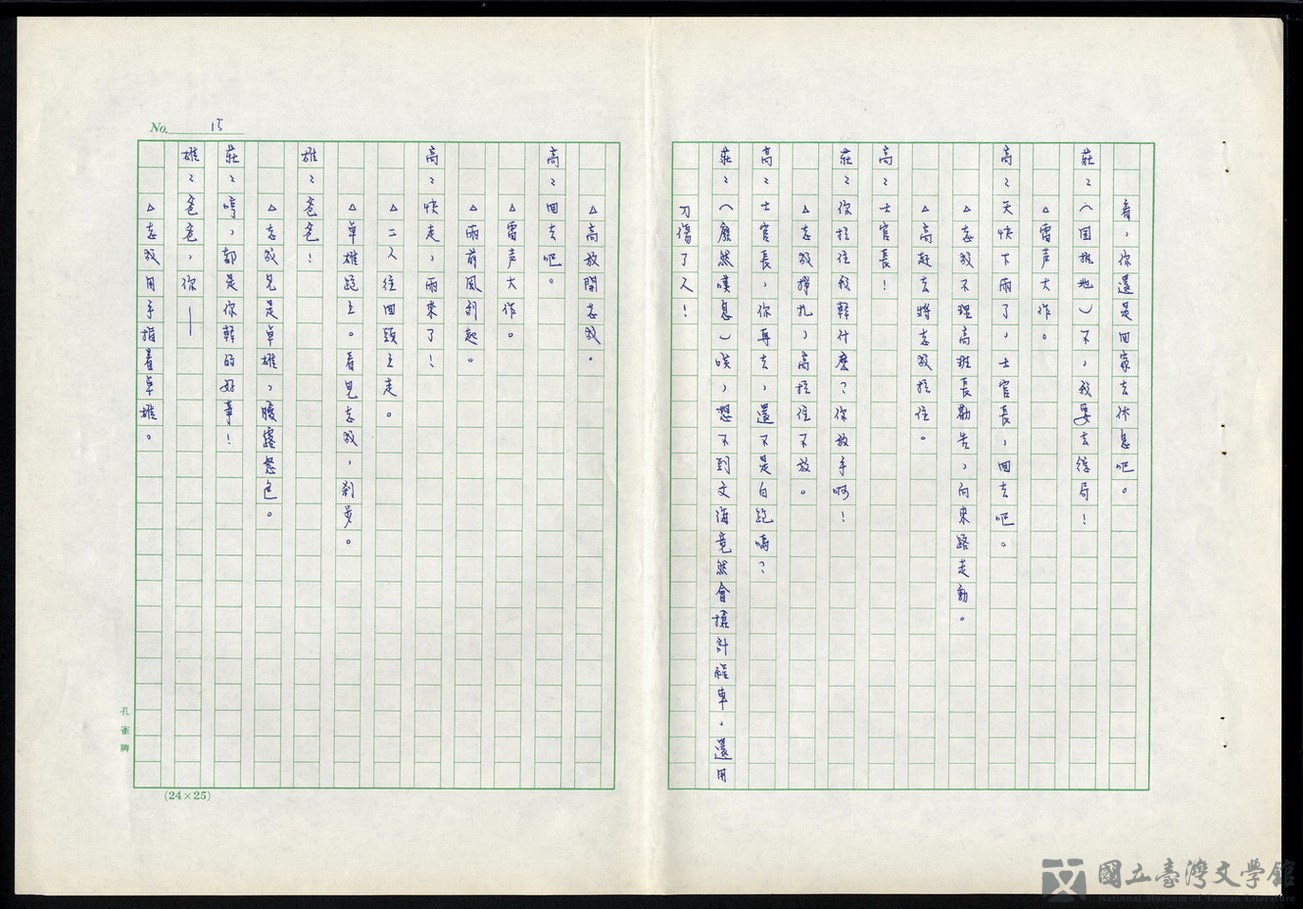 No. 15
看，你還是回家去休息吧。
莊：（固執地）不，我要去警局！
△雷声大作。
高：天快下雨了，士官長，回去吧。
△志敏不理高班長勸告，向來路走動。
△高趕去將志敏拉住。
高：士官長！
莊：你拉住我幹什麼？你放手啊！
△志敏掙扎，高拉住不放。
高：士官長，你再去，還不是白跑嗎？
莊：（廢然嘆息）唉，想不到文海竟然會搶計程車，還用
刀傷了人！
△高放開志敏。
高：回去吧。
△雷声大作。
△雨前風刮起。
高：快走，雨來了！
△二人往回頭走。
△卓雄跑上。看見志敏，剎步。
雄：爸爸！
△志敏見是卓雄，臉露怒色。
莊：哼，都是你幹的好事！
雄：爸爸，你——
△志敏用手指着卓雄。
孔雀牌
(24×25)
國立臺灣文學館
National Museum of Taiwan Literature